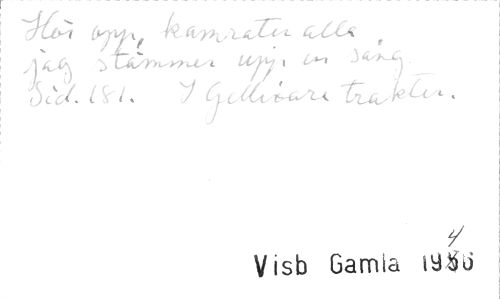 Hör opp, kamrater alla
jag stämmer upp en sång.
Sid. 181. I Gellivare trakten.
4
Visb Gamla 1986